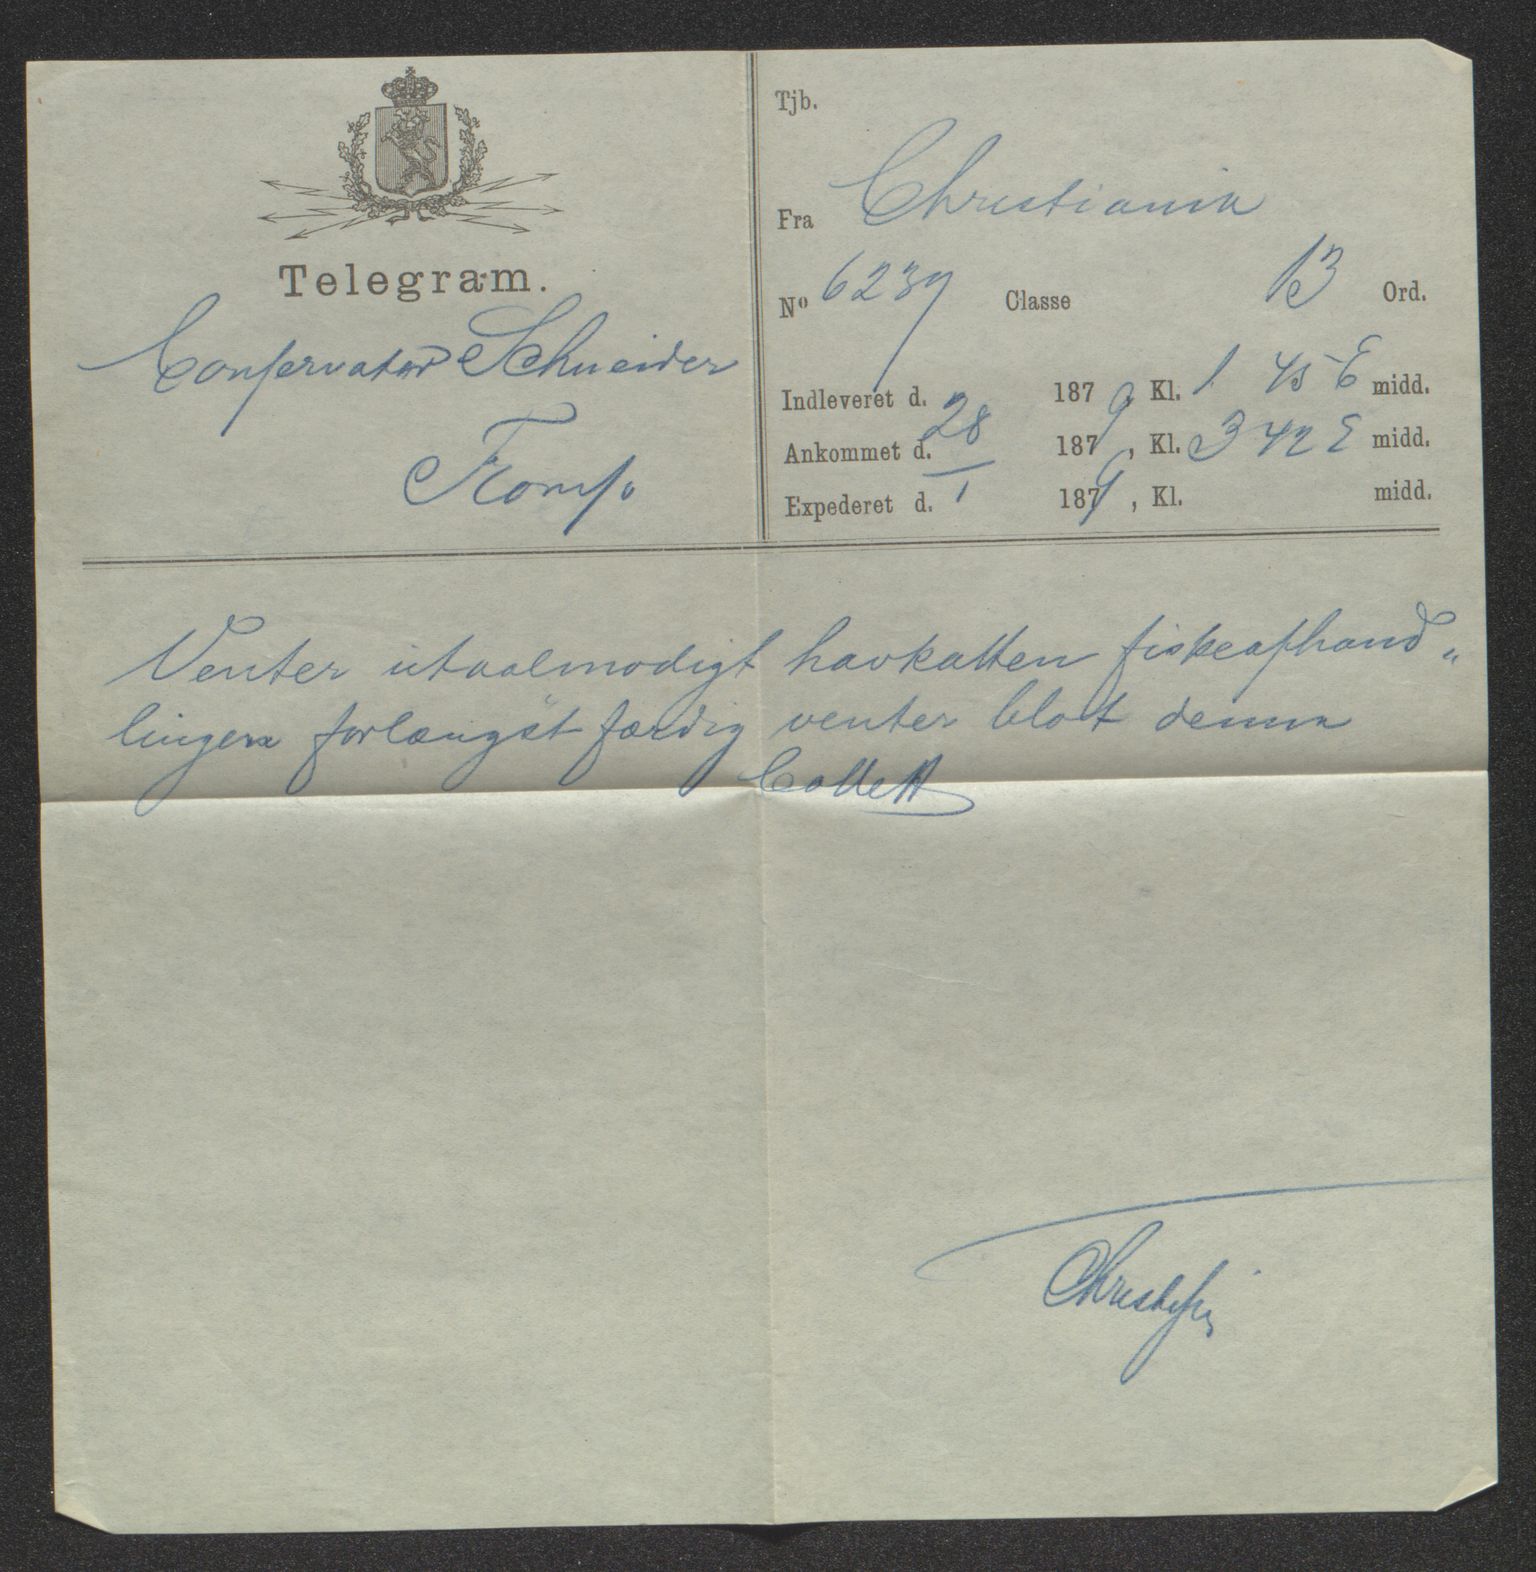 Telegram.
Conservator Schneider
Tromsø
Tjb.
Fra Christiania
No 6239 Classe 13 Ord.
Indleveret d. 1879, Kl. 1 45 E midd.
Ankommet d. 28/1 1879, Kl. 3 42 E midd.
Expederet d. 1879, Kl. midd.
Venter utaalmodigt havkatten fiskeafhand„
lingen forlængst færdig venter blot denne
Collett